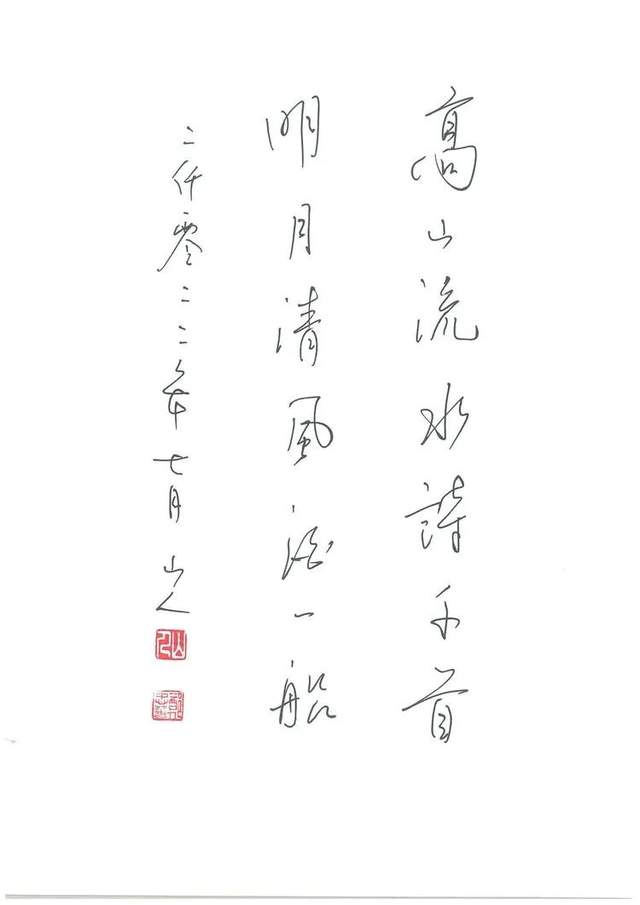 高山流水詩千首
明月清風酒一船
二仟零二二年七月 山人
山人